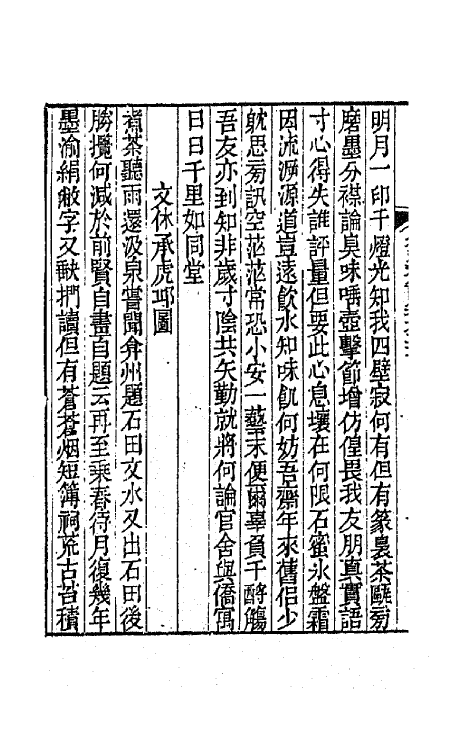 明月一印千燈光知我四壁寂何有但有篆裊茶甌旁
磨墨分襟論臭味唾壺擊節增仿偟畏我友朋真實語
寸心得失誰評量但要此心息壤在何限石蜜冰盤霜
因流溯源道豈遠飲水知味飢何妨吾齋年來舊侶少
躭思旁訊空茫茫常恐小安一藝末便爾辜負千酧觴
吾友亦到知非歲寸陰共矢勤就將何論官舍與僑寓
日日千里如同堂
文休承虎邱圖
煮茶聽雨還汲泉嘗聞弇州題石田文水又出石田後
勝攬何減於前賢自畫自題云再至乘春待月復幾年
墨渝絹敝字又馱捫讀但有蒼蒼烟短簿祠荒古苔積